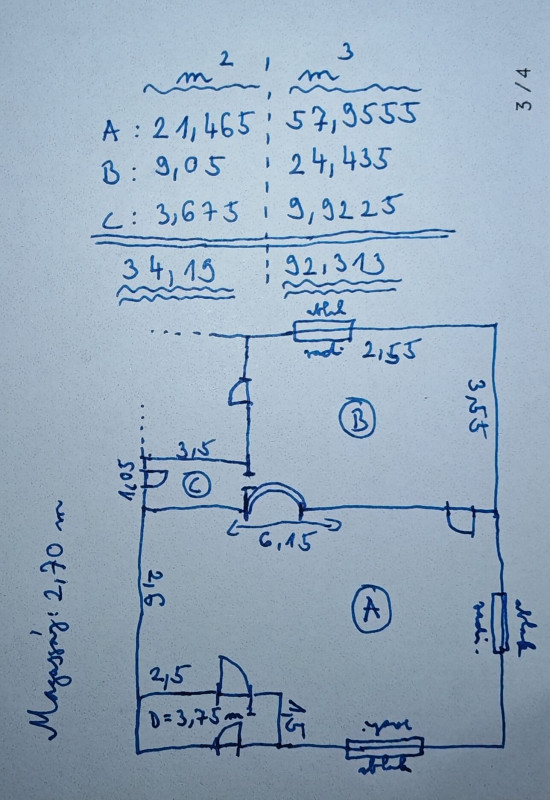 3/4
m² ¦ m³
A: 21,465 ¦ 57,9555
B: 9,05 ¦ 24,435
C: 3,675 ¦ 9,9225
34,19 ¦ 92,313
ablak
radi. 2,55
3,55
B
3,5
1,05
C
6,15
Magasság: 2,70 m
2,6
A
radi.
ablak
2,5
D=3,75 m²
1,5
radi.
ablak